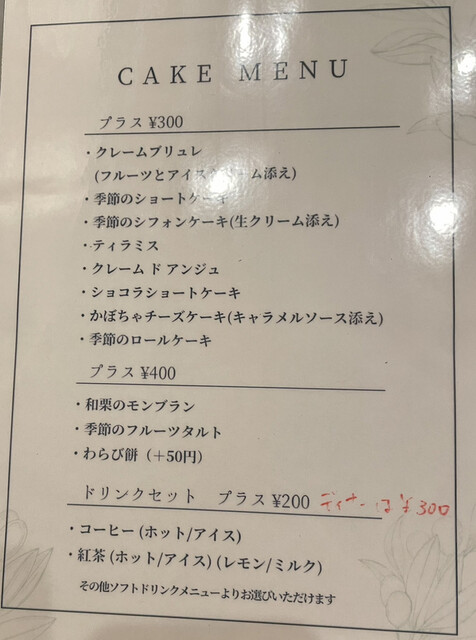 CAKE MENU
プラス ¥300
・クレームブリュレ
(フルーツとアイスクリーム添え)
・季節のショートケーキ
・季節のシフォンケーキ(生クリーム添え)
・ティラミス
・クレーム ド アンジュ
・ショコラショートケーキ
・かぼちゃチーズケーキ(キャラメルソース添え)
・季節のロールケーキ
プラス ¥400
・和栗のモンブラン
・季節のフルーツタルト
・わらび餅（＋50円）
ドリンクセット プラス ¥200 ディナーは¥300
・コーヒー (ホット/アイス)
・紅茶 (ホット/アイス) (レモン/ミルク)
その他ソフトドリンクメニューよりお選びいただけます